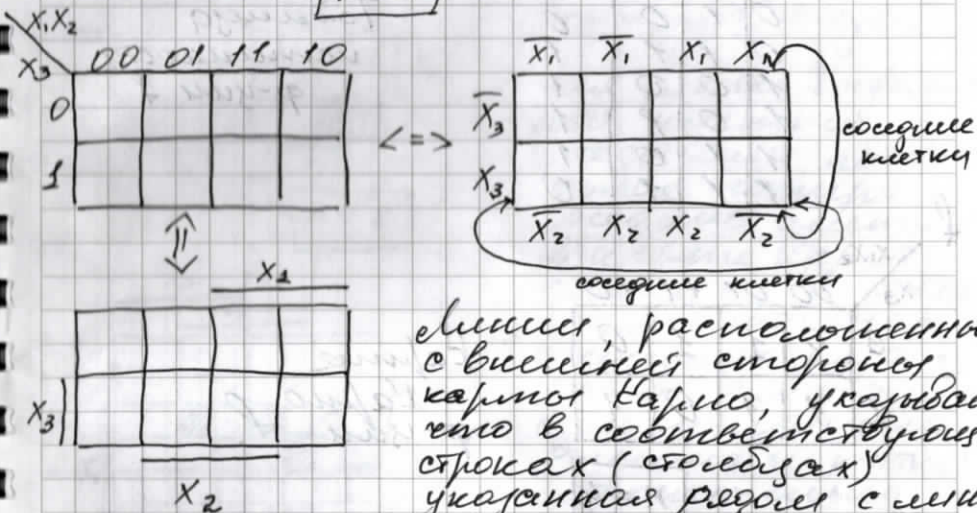 X₁X₂
X₃ 00 01 11 10
0
1
<=>
X̅₁ X̅₁ X₁ X₁
X̅₃
X₃
X̅₂ X₂ X₂ X̅₂
соседние
клетки
соседние клетки
X₁
X₃
X₂
Линии, расположенны
с внешней стороны
карты Карно, указываю
что в соответствующ
строках (столбцах)
указанная рядом с лин